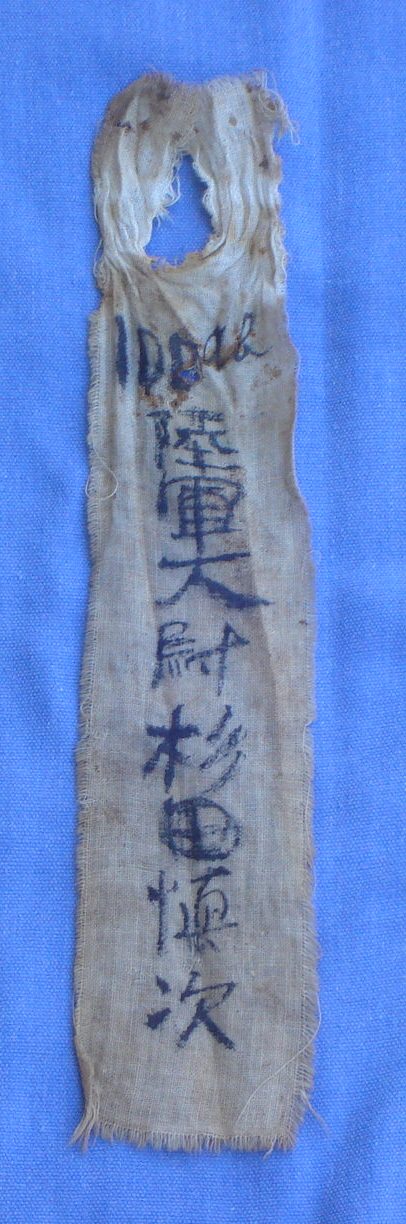 陸軍大尉杉田慎次